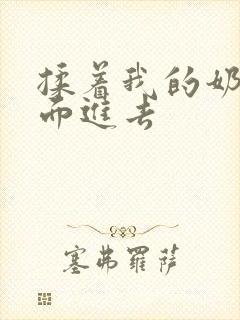 揉着我的奶
而进去
塞弗罗萨